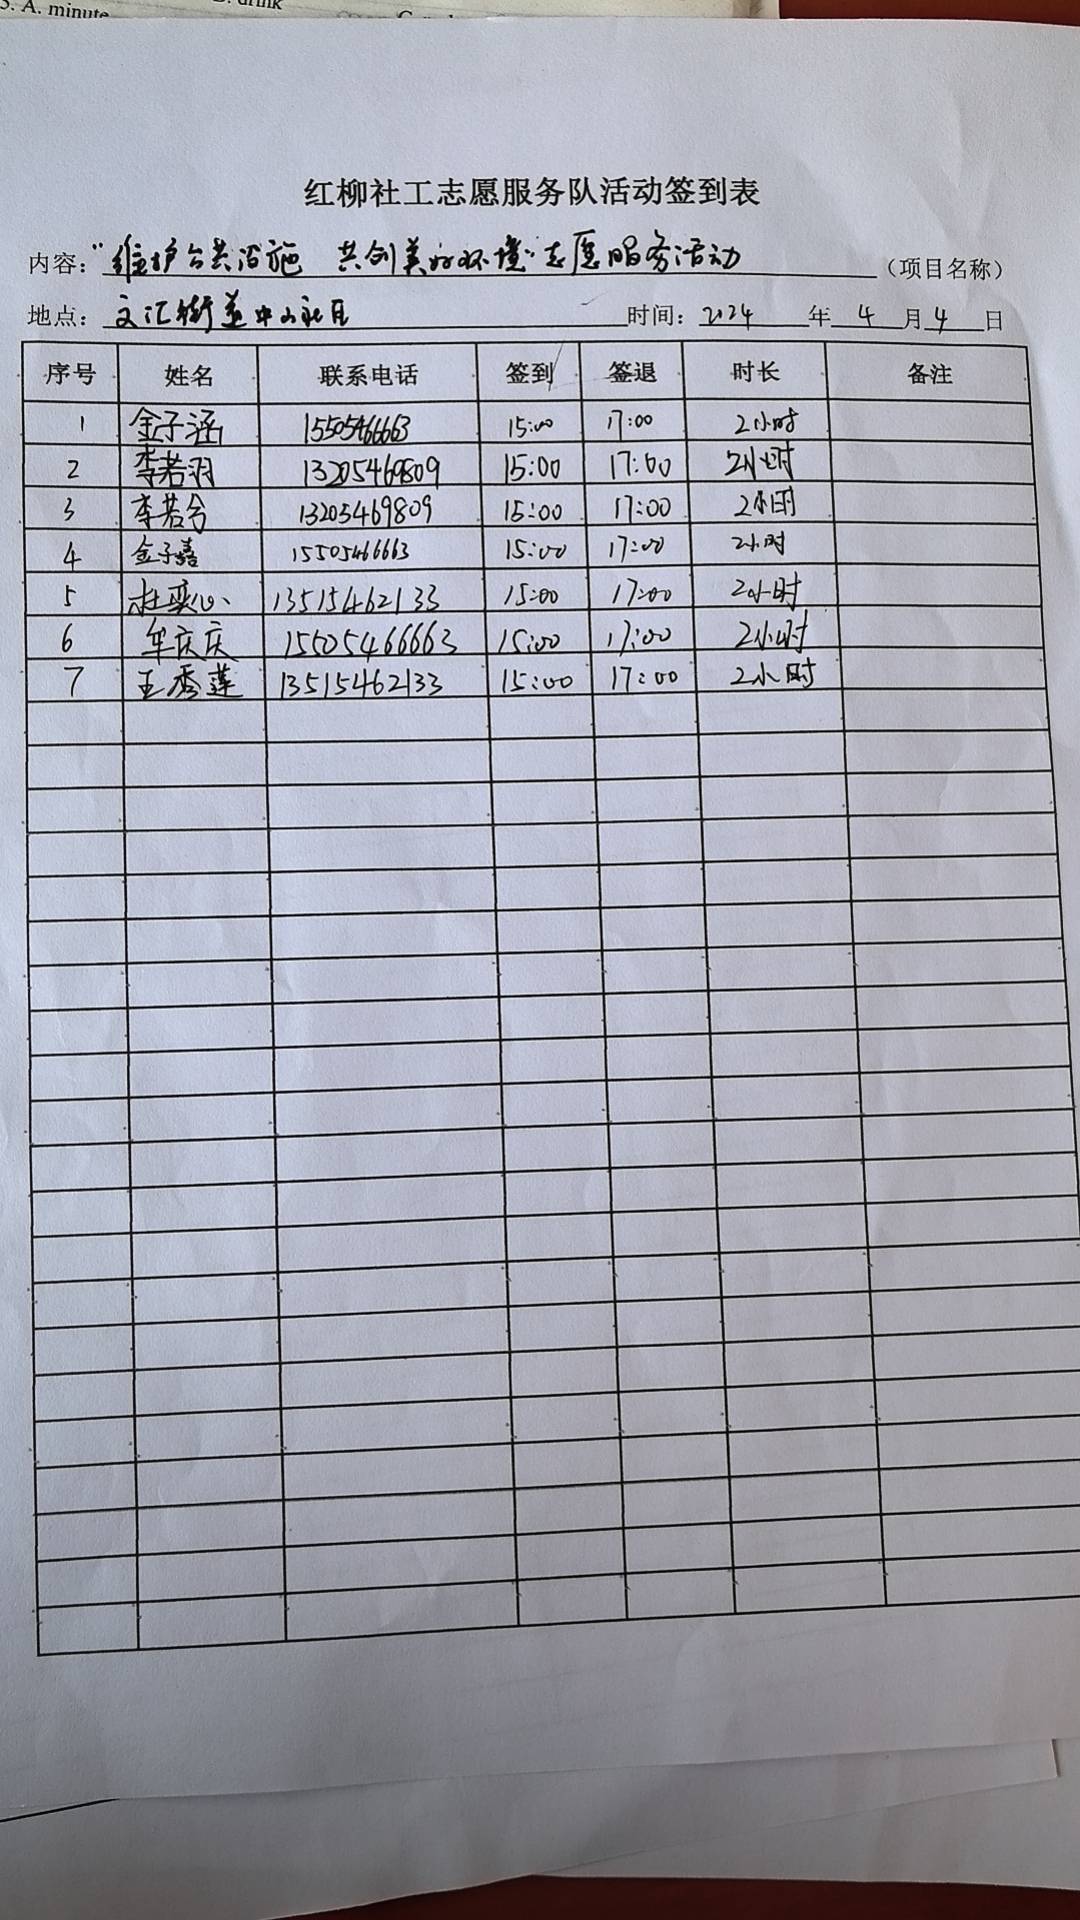 5. A. minute
B. drink
红柳社工志愿服务队活动签到表
内容：“维护公共设施 共创美好环境”志愿服务活动（项目名称）
地点：文汇街道中山社区 时间：2024年4月4日
序号 姓名 联系电话 签到 签退 时长 备注
1 金子涵 15505466663 15:00 17:00 2小时
2 李若羽 13205469809 15:00 17:00 2小时
3 李若兮 13205469809 15:00 17:00 2小时
4 金子嘉 15505466663 15:00 17:00 2小时
5 杜奕心 13515462133 15:00 17:00 2小时
6 牟庆庆 15505466663 15:00 17:00 2小时
7 王秀莲 13515462133 15:00 17:00 2小时